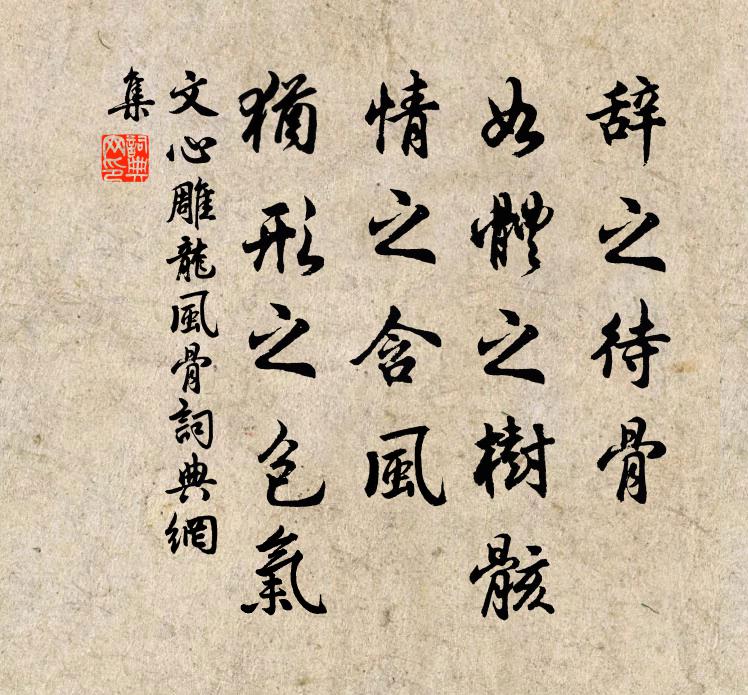 辞之待骨
如體之樹骸
情之含風
猶形之包氣
文心雕龍風骨詞典網
集
詞典
网印